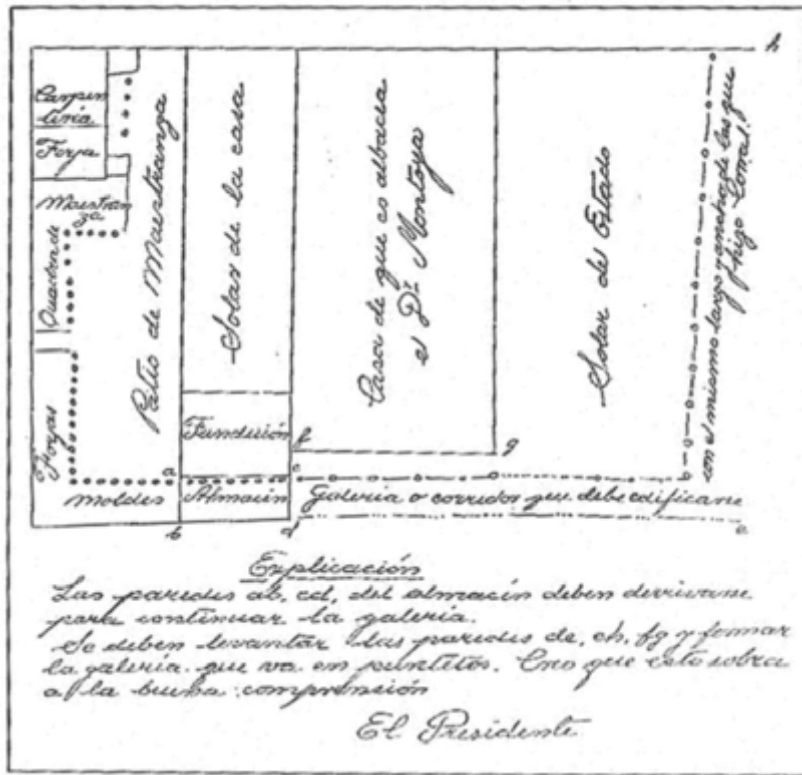 h
Carpin
tería
Forja
Maestran
za
Cuadra de
Forjas
Patio de Maestranza
Solar de la casa
Fundición
Casa de que es albacea
el Dr. Montoya
Solar de Estado
con el mismo largo y ancho de las que
hizo Corral.
f
g
a
c
Moldes
Almacín
Galería o corredor que debe edificarse
b
d
e
Explicación
Las paredes ab, cd, del almacín deben derrivarse
para continuar la galería.
Se deben levantar las paredes de, eh, fg y formar
la galería que va en puntitos. Creo que esto sobra
a la buena comprensión
El Presidente